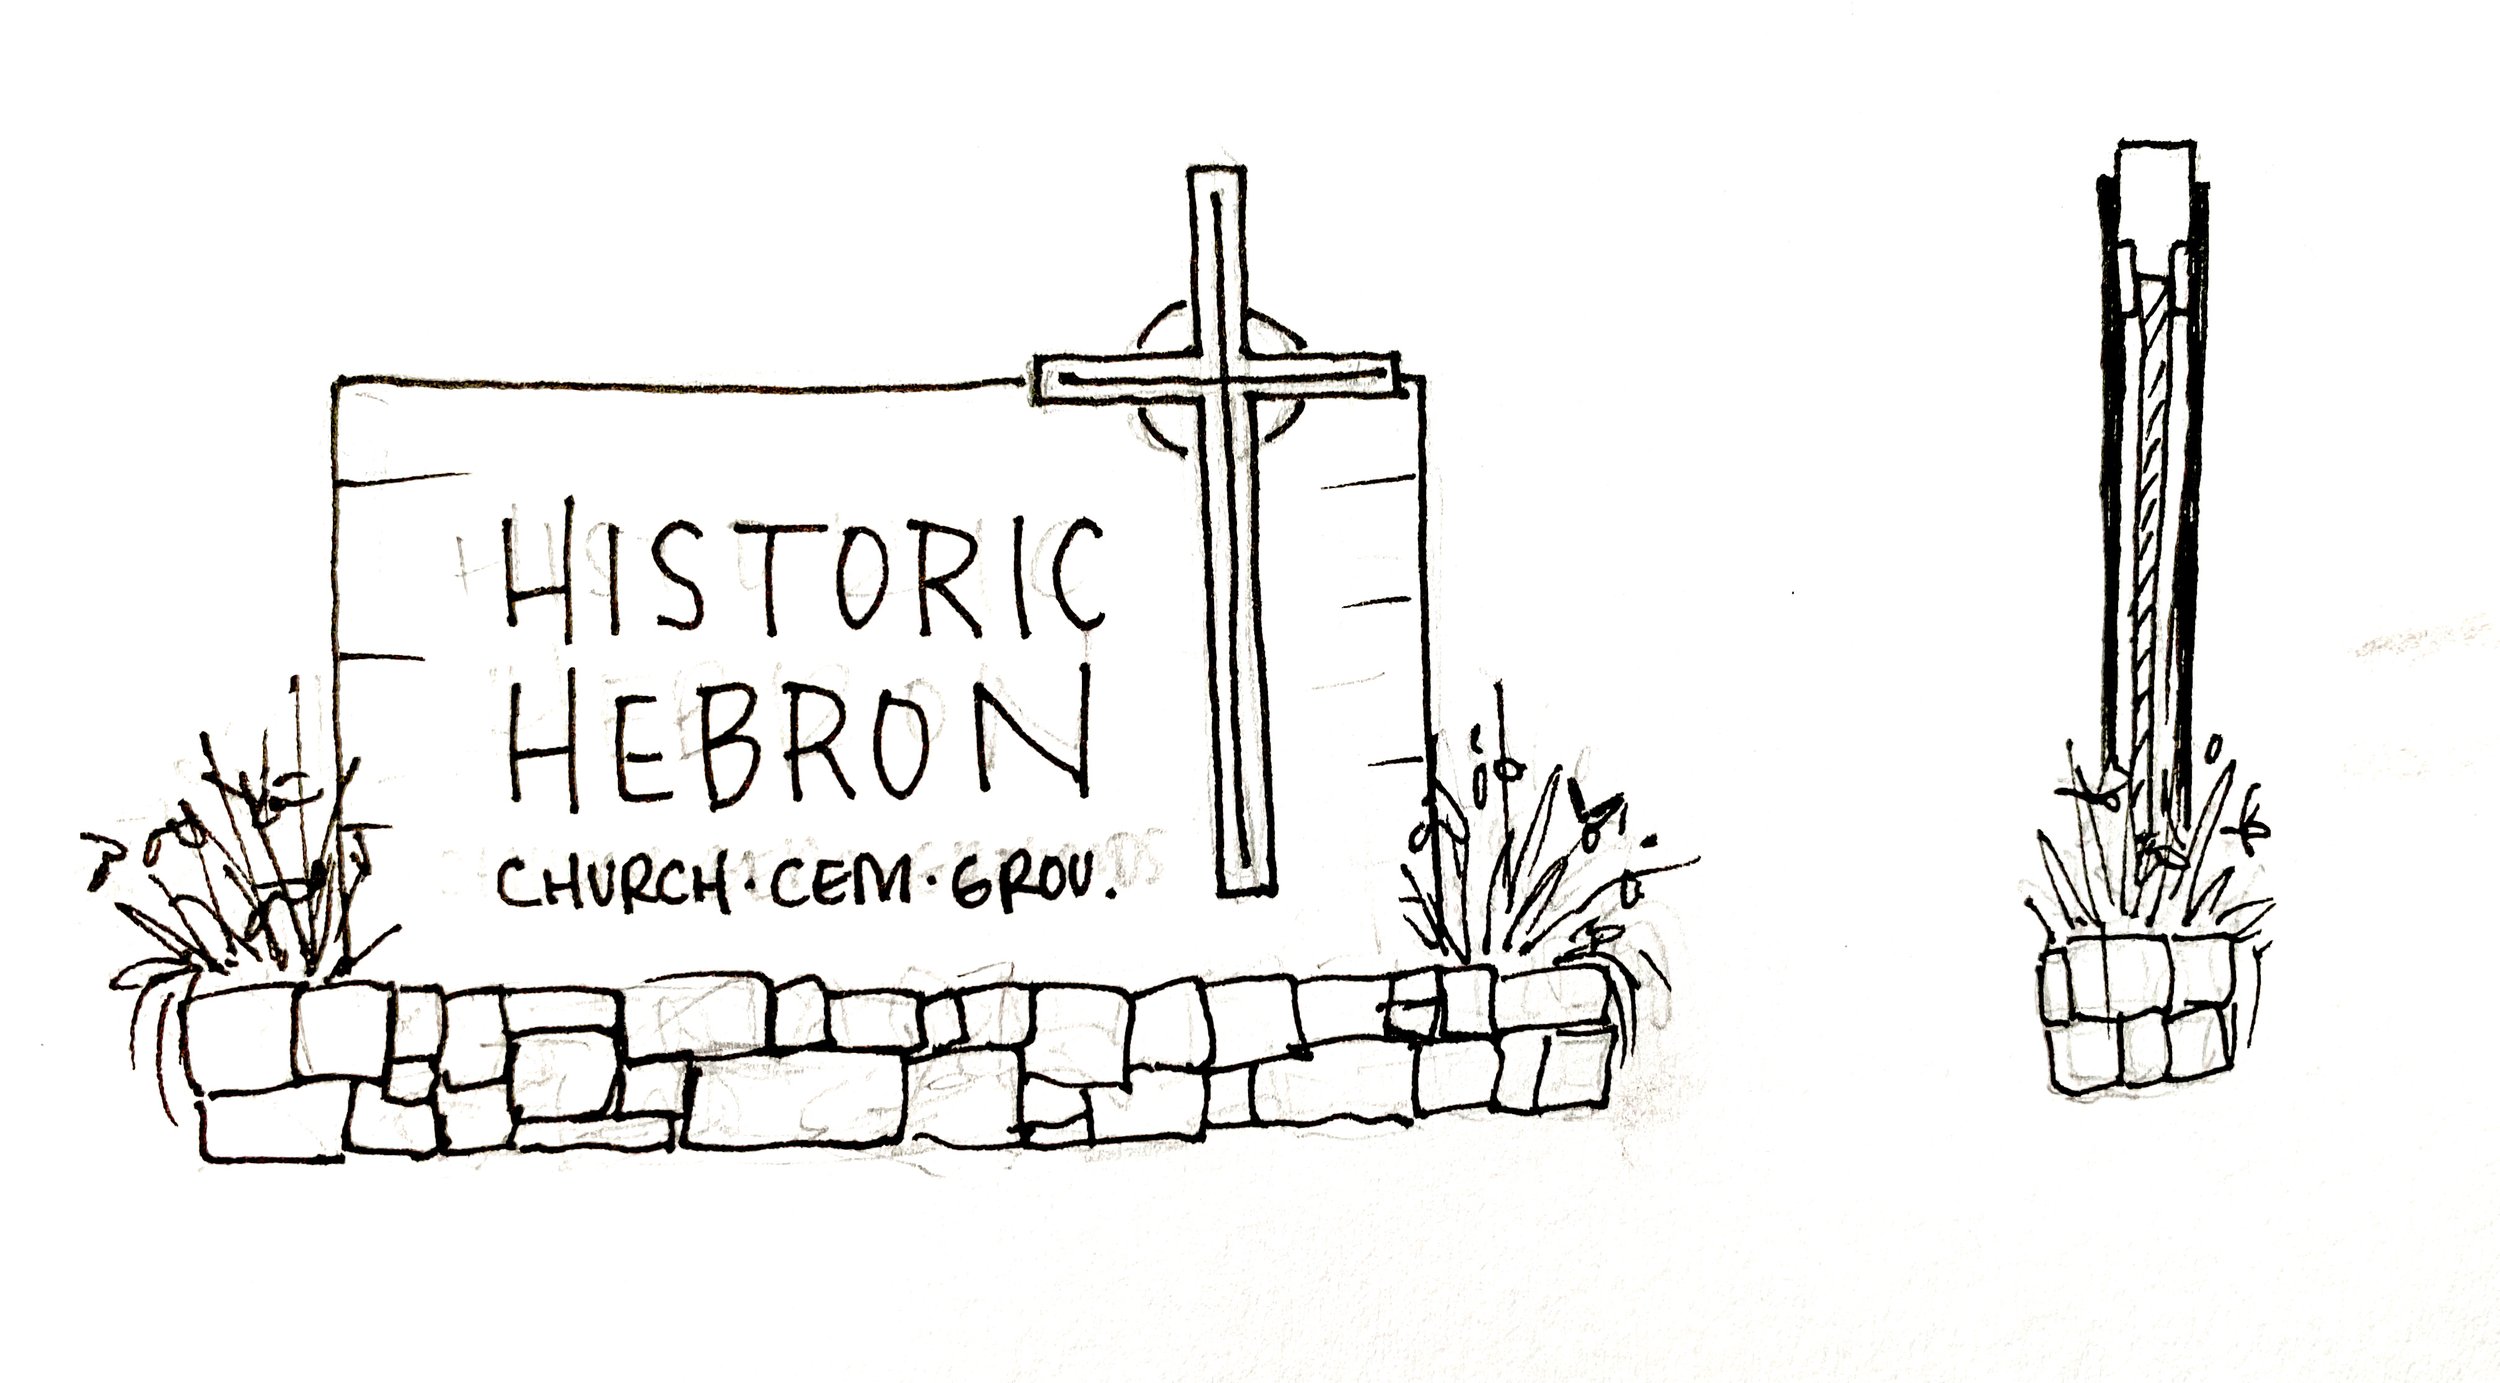 HISTORIC
HEBRON
CHURCH · CEM · GROU.